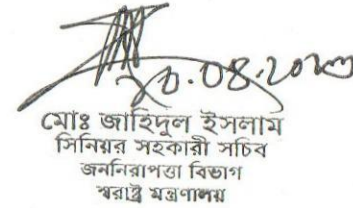 ২০.০৪.২০২৩
মোঃ জাহিদুল ইসলাম
সিনিয়র সহকারী সচিব
জননিরাপত্তা বিভাগ
স্বরাষ্ট্র মন্ত্রণালয়